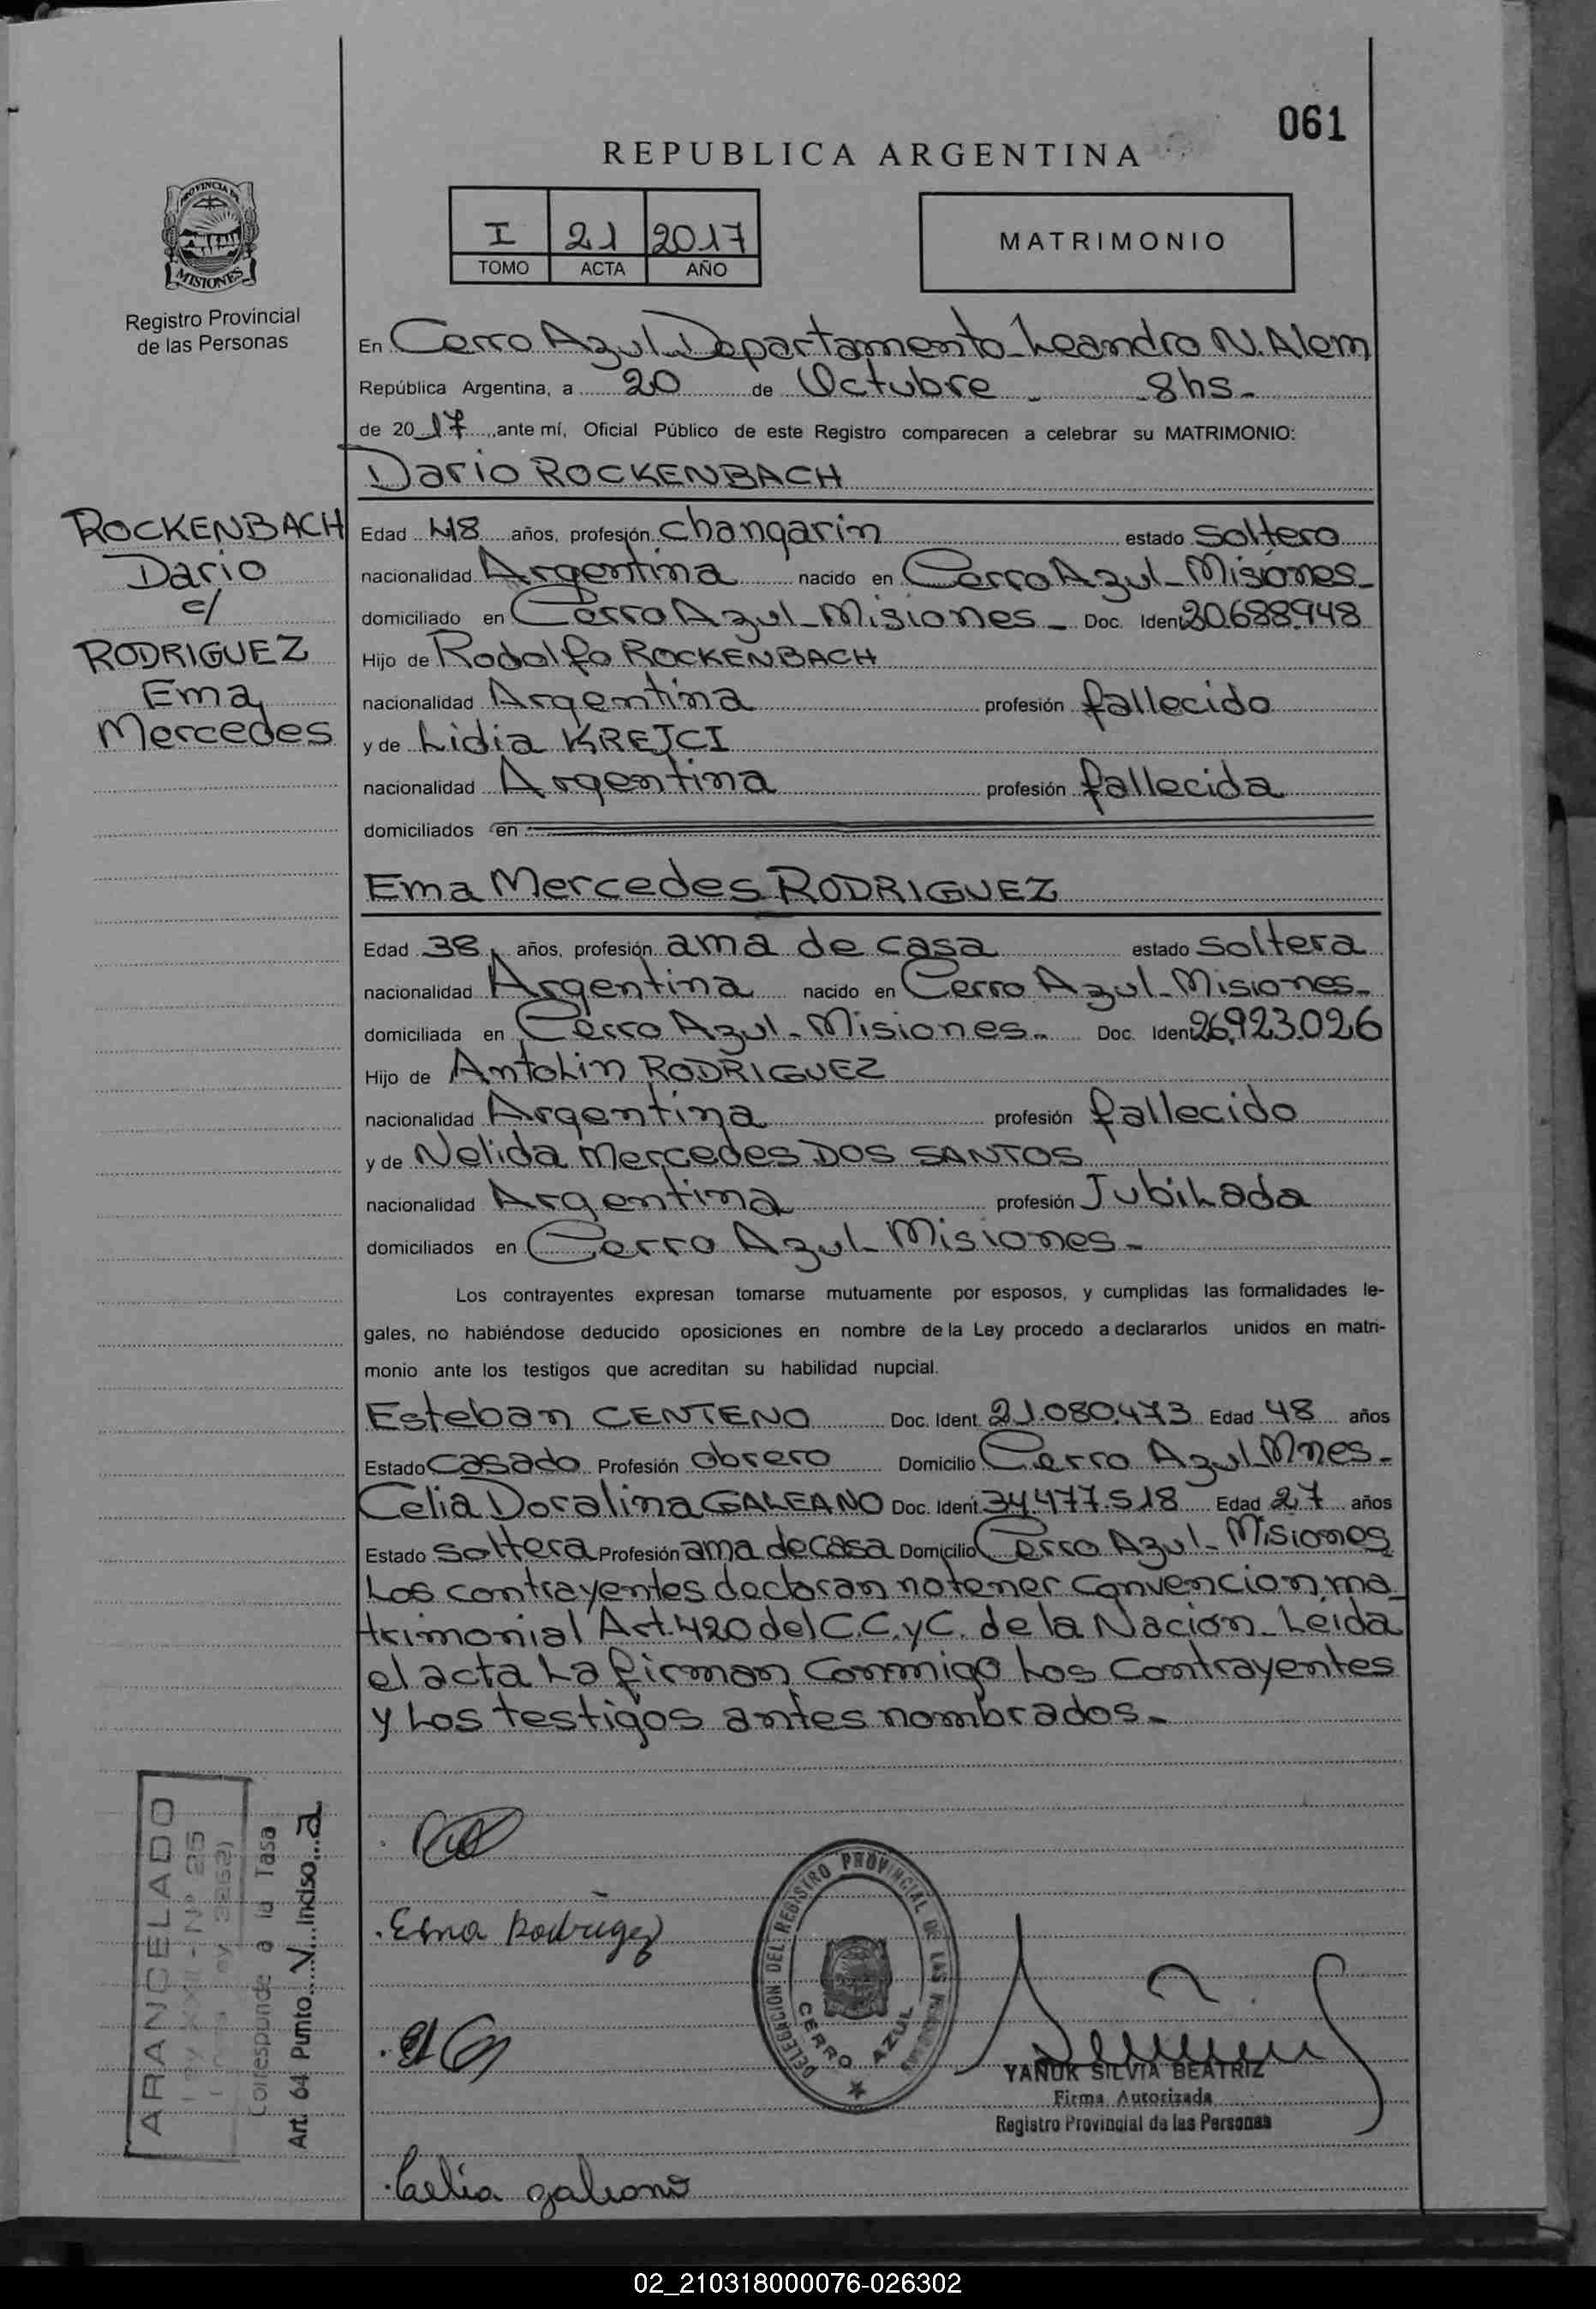 061
REPUBLICA ARGENTINA
PROVINCIA DE
MISIONES
Registro Provincial
de las Personas
I 21 2017
TOMO ACTA AÑO
MATRIMONIO
En Cerro Azul Departamento Leandro N. Alem
República Argentina, a 20 de Octubre - - 8hs -
de 2017, ante mí, Oficial Público de este Registro comparecen a celebrar su MATRIMONIO:
Dario ROCKENBACH
ROCKENBACH
Dario
c/
RODRIGUEZ
Ema
Mercedes
Edad 48 años, profesión changarin estado Soltero
nacionalidad Argentina nacido en Cerro Azul - Misiones -
domiciliado en Cerro Azul - Misiones - Doc. Ident 20.688.948
Hijo de Rodolfo ROCKENBACH
nacionalidad Argentina profesión fallecido
y de Lidia KREJCI
nacionalidad Argentina profesión fallecida
domiciliados en
Ema Mercedes RODRIGUEZ
Edad 38 años, profesión ama de casa estado Soltera
nacionalidad Argentina nacido en Cerro Azul - Misiones -
domiciliada en Cerro Azul - Misiones - Doc. Ident 26.923.026
Hijo de Antolin RODRIGUEZ
nacionalidad Argentina profesión fallecido
y de Nelida Mercedes DOS SANTOS
nacionalidad Argentina profesión Jubilada
domiciliados en Cerro Azul - Misiones -
Los contrayentes expresan tomarse mutuamente por esposos, y cumplidas las formalidades le-
gales, no habiéndose deducido oposiciones en nombre de la Ley procedo a declararlos unidos en matri-
monio ante los testigos que acreditan su habilidad nupcial.
Esteban CENTENO Doc. Ident. 21.080.473 Edad 48 años
Estado Casado Profesión Obrero Domicilio Cerro Azul - Mnes -
Celia Doralina GALEANO Doc. Ident. 34.477.518 Edad 27 años
Estado Soltera Profesión ama de casa Domicilio Cerro Azul - Misiones
Los contrayentes declaran no tener convencion ma
trimonial Art. 420 del C.C. y C. de la Nación - Leida
el acta La firman conmigo Los Contrayentes
y Los testigos antes nombrados -
ARANCELADO
Corresponde a la Tasa
Art. 64 Punto V Inciso a
Ema Rodriguez
DELEGACION DEL REGISTRO PROVINCIAL DE LAS PERSONAS
CERRO AZUL
YANUK SILVIA BEATRIZ
Firma Autorizada
Registro Provincial de las Personas
Celia galeano
02_210318000076-026302